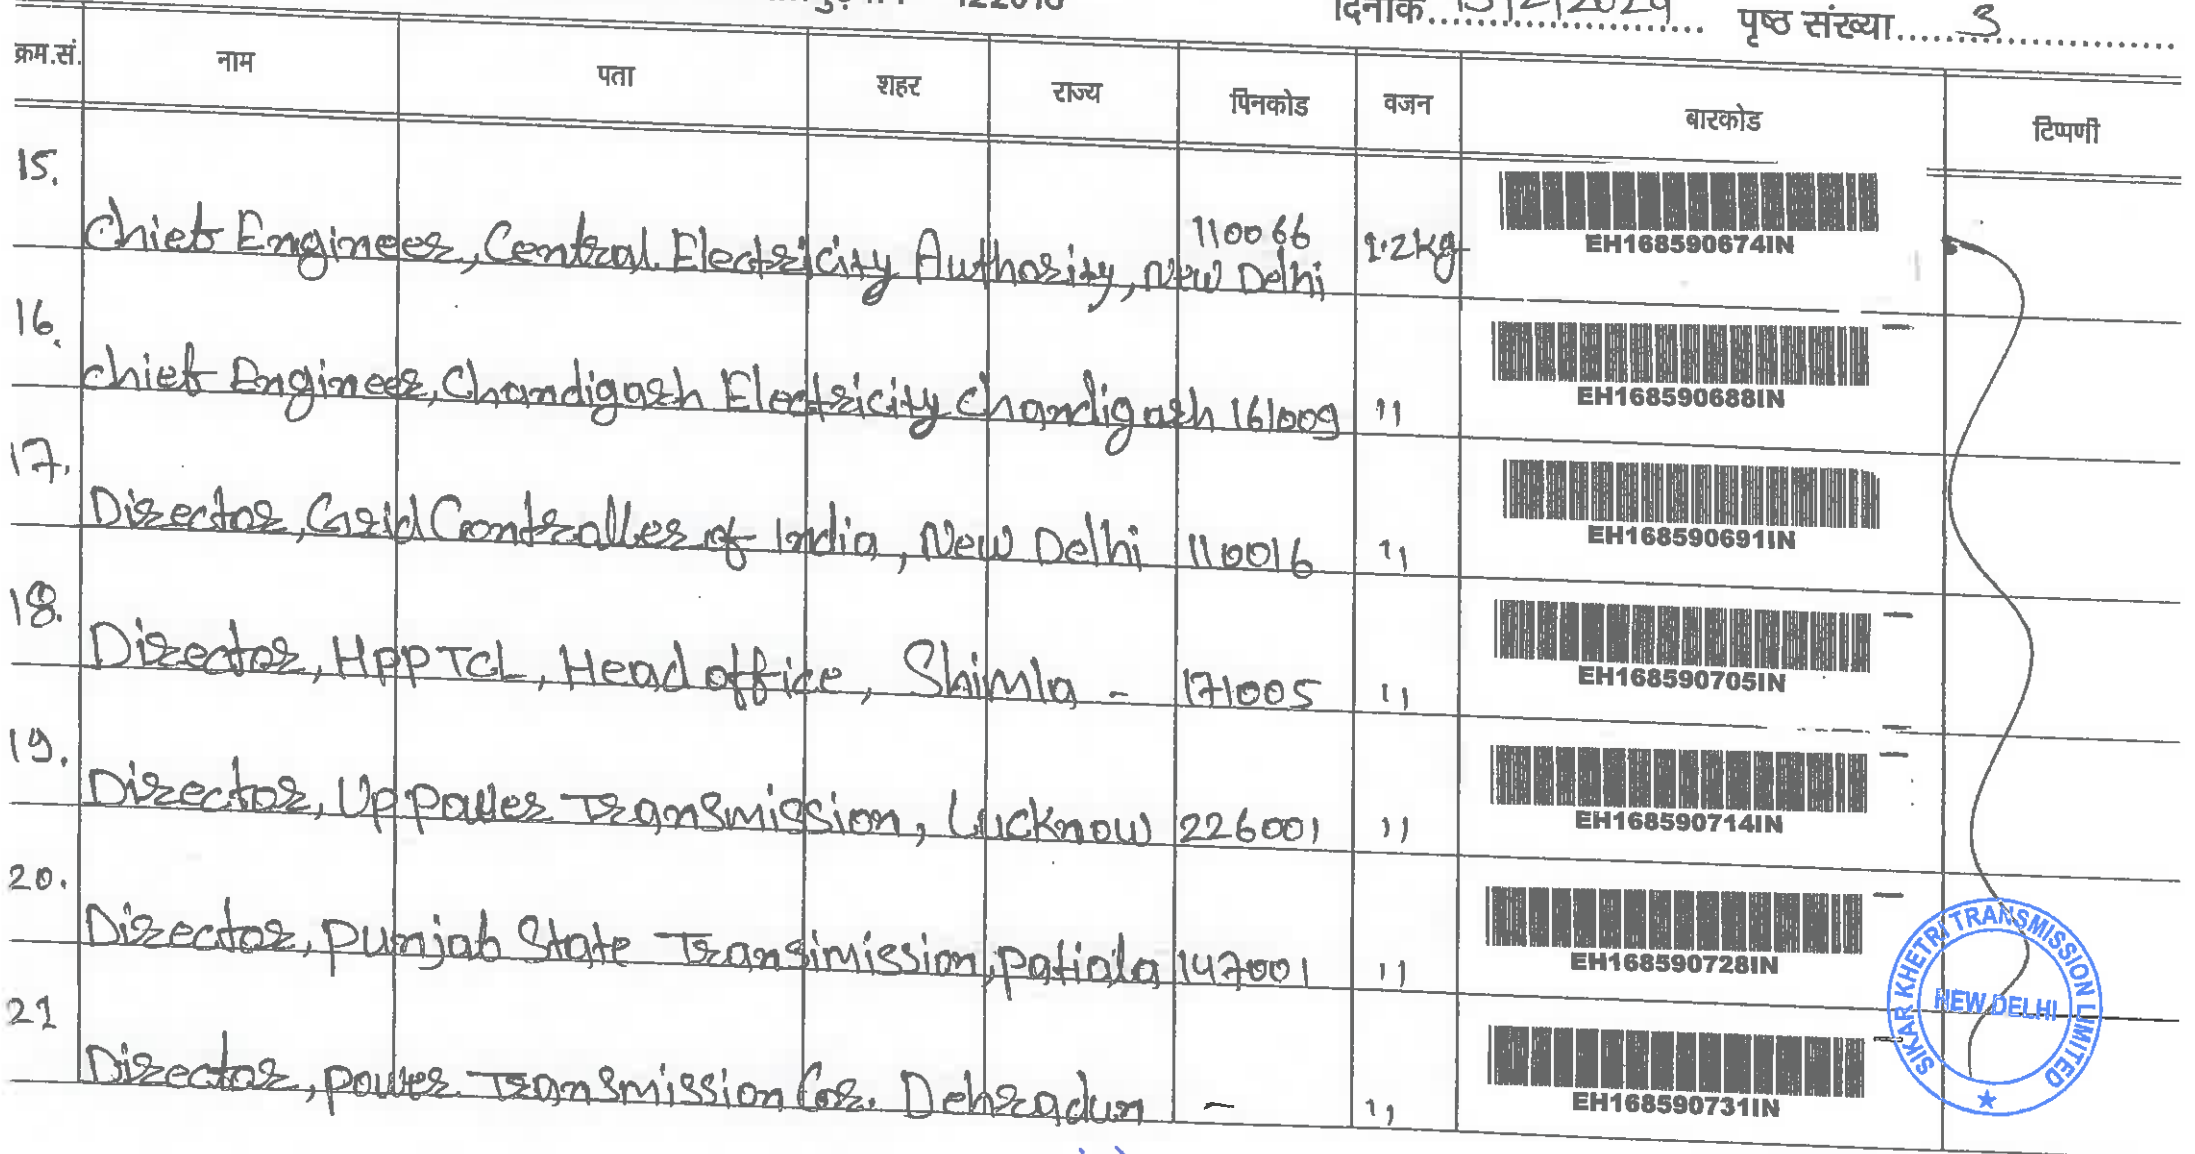 122016 दिनांक 15/2/2024 पृष्ठ संख्या 3
क्रम.सं. नाम पता शहर राज्य पिनकोड वजन बारकोड टिप्पणी
15. Chief Engineer, Central Electricity Authority, New Delhi 110066 1.2kg EH168590674IN
16. Chief Engineer, Chandigarh Electricity Chandigarh 161009 " EH168590688IN
17. Director, Grid Controller of India, New Delhi 110016 " EH168590691IN
18. Director, HPPTCL, Head office, Shimla - 171005 " EH168590705IN
19. Director, Up Power Transmission, Lucknow 226001 " EH168590714IN
20. Director, Punjab State Transimission, Patiala 147001 " EH168590728IN
21 Director, Power Transmission Cor. Dehradun - " EH168590731IN
SIKAR KHETRI TRANSMISSION LIMITED
NEW DELHI